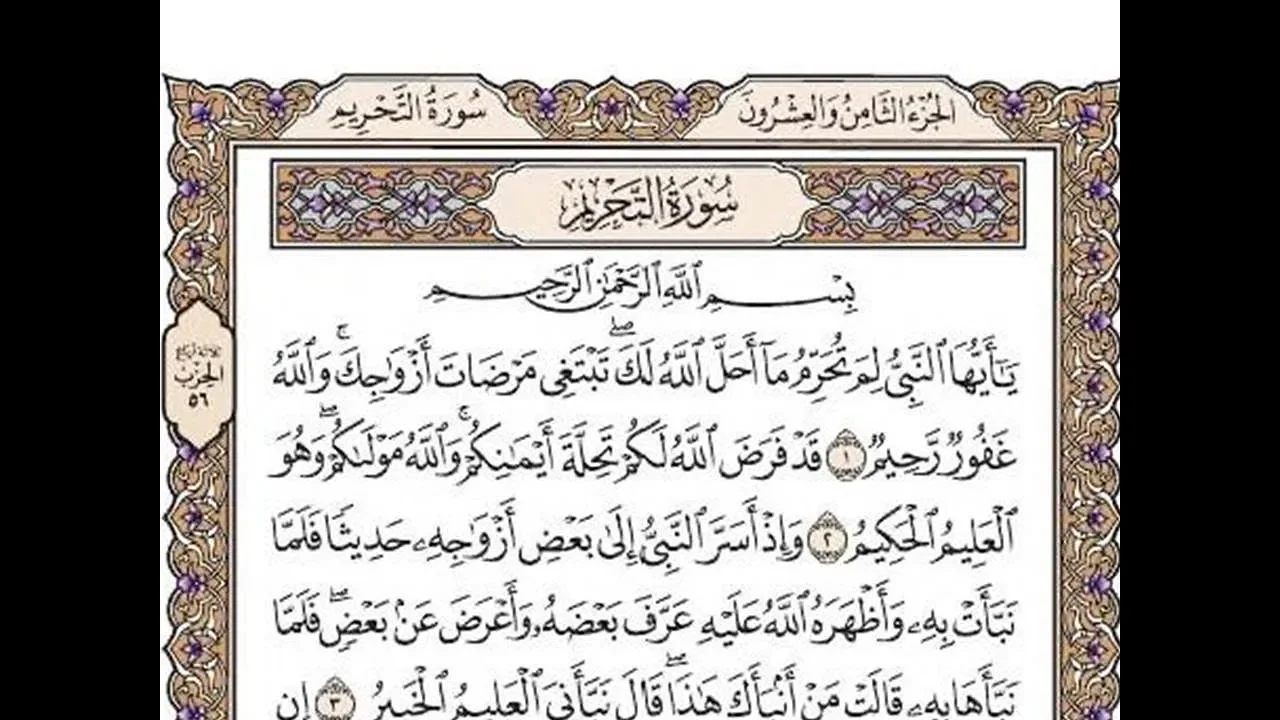 الجُزْءُ الثَّامِنُ وَالعِشْرُونَ
سُورَةُ التَّحْرِيمِ
سُورَةُ التَّحْرِيمِ
بِسْمِ ٱللَّهِ ٱلرَّحْمَٰنِ ٱلرَّحِيمِ
يَٰٓأَيُّهَا ٱلنَّبِيُّ لِمَ تُحَرِّمُ مَآ أَحَلَّ ٱللَّهُ لَكَۖ تَبْتَغِى مَرْضَاتَ أَزْوَٰجِكَۚ وَٱللَّهُ
غَفُورٌ رَّحِيمٌ ١ قَدْ فَرَضَ ٱللَّهُ لَكُمْ تَحِلَّةَ أَيْمَٰنِكُمْۚ وَٱللَّهُ مَوْلَىٰكُمْۖ وَهُوَ
ٱلْعَلِيمُ ٱلْحَكِيمُ ٢ وَإِذْ أَسَرَّ ٱلنَّبِيُّ إِلَىٰ بَعْضِ أَزْوَٰجِهِۦ حَدِيثًا فَلَمَّا
نَبَّأَتْ بِهِۦ وَأَظْهَرَهُ ٱللَّهُ عَلَيْهِ عَرَّفَ بَعْضَهُۥ وَأَعْرَضَ عَنۢ بَعْضٍۖ فَلَمَّا
نَبَّأَهَا بِهِۦ قَالَتْ مَنْ أَنۢبَأَكَ هَٰذَاۖ قَالَ نَبَّأَنِىَ ٱلْعَلِيمُ ٱلْخَبِيرُ ٣ إِن
ثلاثة أرباع
الحزب
٥٦